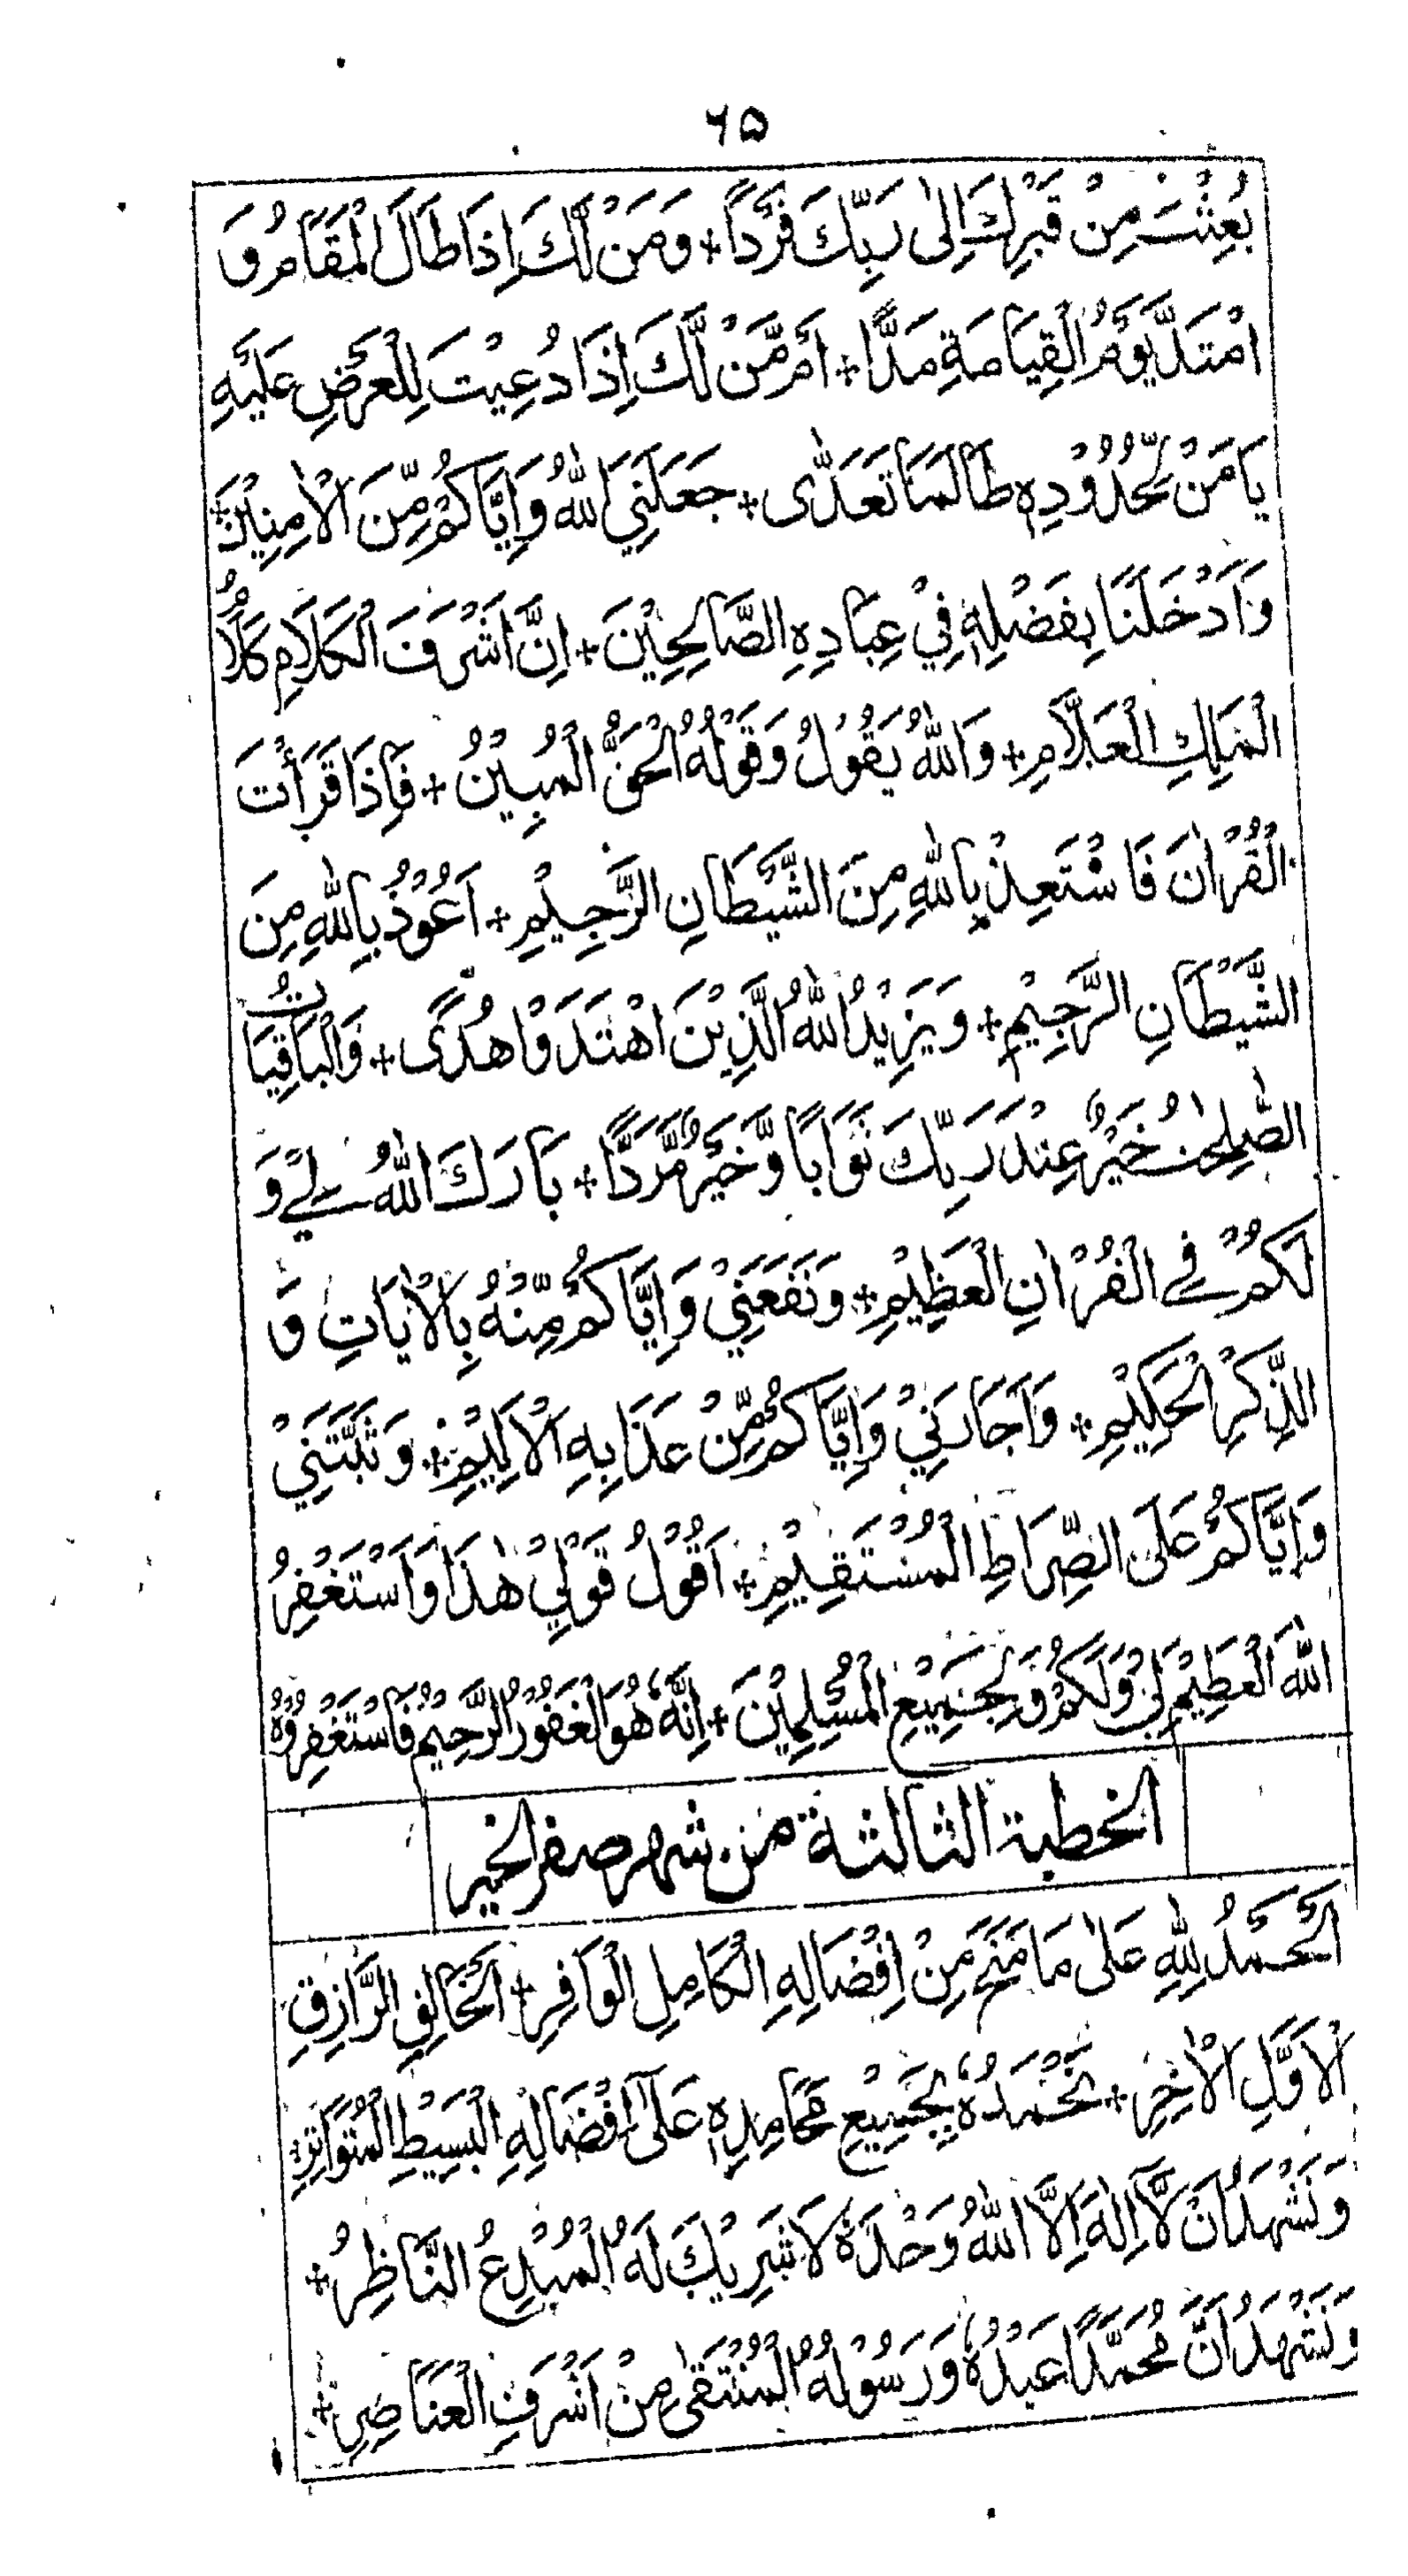 ۶۵
بُعِثْتَ مِنْ قَبْرِكَ اِلٰى رَبِّكَ فَرْدًا + وَمَنْ لَّكَ اِذَا طَالَ الْمَقَامُ وَ
امْتَدَّ يَوْمُ الْقِيَامَةِ مَدًّا + اَمْ مَّنْ لَّكَ اِذَا دُعِيْتَ لِلْعَرْضِ عَلَيْهِ
يَا مَنْ لِّحُدُوْدِهٖ طَالَمَا تَعَدّٰى + جَعَلَنِيَ اللّٰهُ وَاِيَّاكُمْ مِّنَ الْاٰمِنِيْنَ +
وَاَدْخَلَنَا بِفَضْلِهٖ فِيْ عِبَادِهِ الصَّالِحِيْنَ + اِنَّ اَشْرَفَ الْكَلَامِ كَلَامُ
الْمَلِكِ الْعَلَّامِ + وَاللّٰهُ يَقُوْلُ وَقَوْلُهُ الْحَقُّ الْمُبِيْنُ + فَاِذَا قَرَأْتَ
الْقُرْاٰنَ فَاسْتَعِذْ بِاللّٰهِ مِنَ الشَّيْطَانِ الرَّجِيْمِ + اَعُوْذُ بِاللّٰهِ مِنَ
الشَّيْطَانِ الرَّجِيْمِ + وَيَزِيْدُ اللّٰهُ الَّذِيْنَ اهْتَدَوْا هُدًى + وَالْبَاقِيَاتُ
الصّٰلِحٰتُ خَيْرٌ عِنْدَ رَبِّكَ ثَوَابًا وَّخَيْرٌ مَّرَدًّا + بَارَكَ اللّٰهُ لِيْ وَ
لَكُمْ فِي الْقُرْاٰنِ الْعَظِيْمِ + وَنَفَعَنِيْ وَاِيَّاكُمْ مِّنْهُ بِالْاٰيَاتِ وَ
الذِّكْرِ الْحَكِيْمِ + وَاَجَارَنِيْ وَاِيَّاكُمْ مِّنْ عَذَابِهِ الْاَلِيْمِ + وَثَبَّتَنِيْ
وَاِيَّاكُمْ عَلَى الصِّرَاطِ الْمُسْتَقِيْمِ + اَقُوْلُ قَوْلِيْ هٰذَا وَاَسْتَغْفِرُ
اللّٰهَ الْعَظِيْمَ لِيْ وَلَكُمْ وَلِجَمِيْعِ الْمُسْلِمِيْنَ + اِنَّهٗ هُوَ الْغَفُوْرُ الرَّحِيْمُ فَاسْتَغْفِرُوْهُ
الخطبة الثالثة من شهر صفر الخير
اَلْحَمْدُ لِلّٰهِ عَلٰى مَا مَنَحَ مِنْ اِفْضَالِهِ الْكَامِلِ الْوَافِرِ + الْخَالِقِ الرَّازِقِ
الْاَوَّلِ الْاٰخِرِ + نَحْمَدُهٗ بِجَمِيْعِ مَحَامِدِهٖ عَلٰى اِفْضَالِهِ الْبَسِيْطِ الْمُتَوَاتِرِ +
وَنَشْهَدُ اَنْ لَّا اِلٰهَ اِلَّا اللّٰهُ وَحْدَهٗ لَا شَرِيْكَ لَهُ الْمُبْدِعُ النَّاظِرُ +
وَنَشْهَدُ اَنَّ مُحَمَّدًا عَبْدُهٗ وَرَسُوْلُهُ الْمُنْتَقٰى مِنْ اَشْرَفِ الْعَنَاصِرِ +